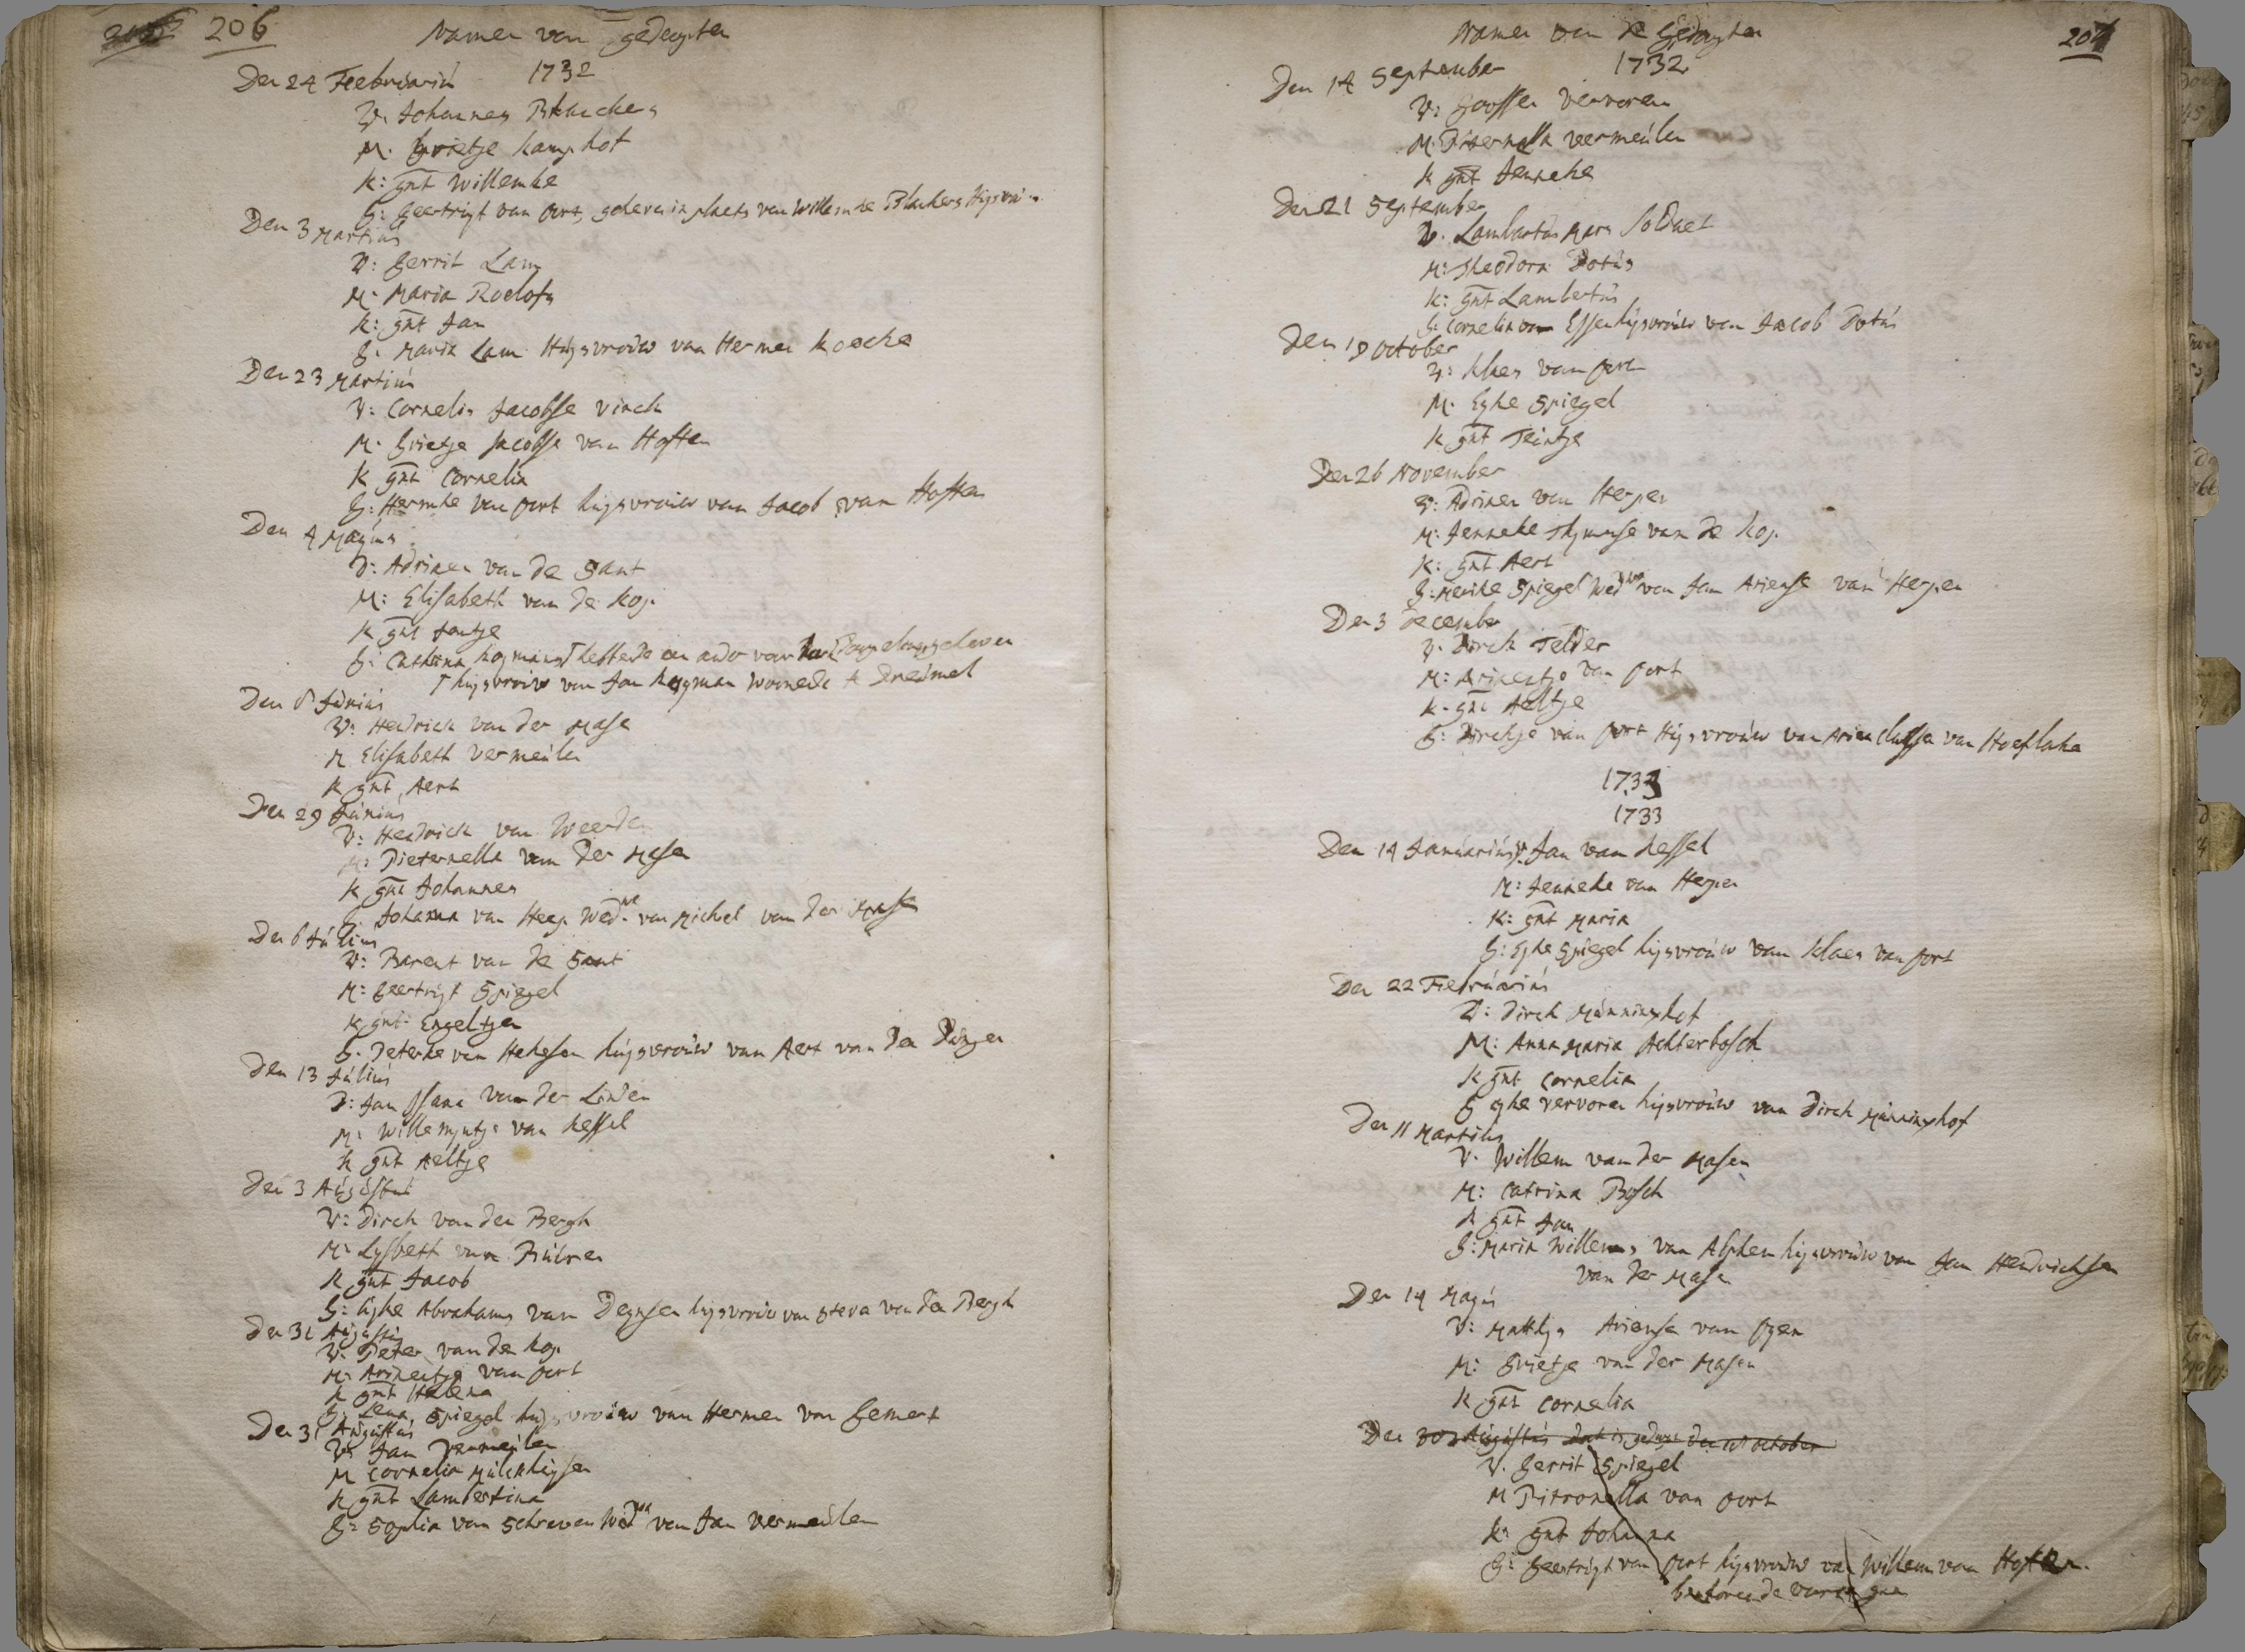 206
Namen van gedoopten
1732
Den 24 Feebruariu
V: Johannes Blanckers
M: Grietje Kamphof
K: gnt Willemke
G: Geertruyt van Oort, geheven in plaets van Willemke Blanckers
Den 3 Martius
V: Gerrit Lam
M: Maria Roelofs
K: gnt Jan
G: Maria Lam Huysvrouw van Hermen Koecke
Den 23 Martius
V: Cornelis Jacobsse Vinck
M: Grietje Jacobsse van Hoften
K gnt Cornelia
G: Hermke van Oort huysvrouw van Jacob van Hoften
Den 4 Mayus
V: Adriaen van de Sant
M: Elisabeth van de Kop
K gnt Jantje
G: Cathrina Koymans
huysvrouw van Jan Koyman woonede te Dreumel
Den 8 Junius
V: Hendrick van der Mase
M Elisabeth Vermeulen
K gnt Aert
Den 29 Junius
V: Hendrick van Weerden
M: Pieternella van der Masen
K gnt Johannes
G: Johanna van Heep Wed.we van Michel van der Masen
Den 6 Julius
V: Barent van de Sant
M: Geertruyt Spiegel
K gnt Engeltjen
G: Peterke van Hekesen huysvrouw van Aert van den
Den 13 Julius
V: Jan van der Linden
M: Willemyntje van Hessel
K gnt Aeltje
Den 3 Augustus
V: Dirck van den Bergh
M: Lysbeth van Buuren
K gnt Jacob
G: Eyke Abrahams van Deynsen huysvrouw van Steven van den Bergh
Den 31 Augustus
V: Peter van de Kop
M: Ariaentje van Oort
K gnt Helena
G: Lena Spiegel huysvrouw van Hermen van Gemert
Den 31 Augustus
V: Jan Vermeulen
M Cornelia Mulckhuysen
K gnt Lambertina
G: Sophia van Schraven Wed.we van Jan Vermeulen
Namen van de Gedoopten
207
1732
Den 14 September
V: Goossen Vervoren
M: Pieternella Vermeulen
K gnt Jenneke
Den 21 September
V: Lambertus Mars Soldaet
M: Theodora Dotus
K: gnt Lambertus
G: Cornelia van Essen huysvrouw van Jacob Dotus
Den 19 October
V: Klaes van Oort
M: Eyke Spiegel
K gnt Teuntje
Den 26 November
V: Adriaen van Herpen
M: Jenneke Thymense van de Kop
K: gnt Aert
G: Merike Spiegel Wed.we van Jan Ariense van Herpen
Den 3 December
V: Dirck Telder
M: Ariaentje van Oort
K: gnt Aeltje
G: Dirckje van Oort Huysvrouw van Arien Classe van Hoeflaken
1733
1733
Den 14 Januarius V: Jan van Hessel
M: Jenneke van Herpen
K: gnt Maria
G: Eyke Spiegel huysvrouw van Klaes van Oort
Den 22 Feebruarius
V: Dirck Münninghof
M: Anna Maria Achterbosch
K gnt Cornelia
G Eyke Vervoren huysvrouw van Dirck Münninghof
Den 11 Martius
V: Willem van der Masen
M: Catrina Bosch
K gnt Jan
G: Maria Willems van Alphen huysvrouw van Jan Hendricksen
van der Masen
Den 14 Mayus
V: Matthys Ariense van Oyen
M: Grietje van der Masen
K gnt Cornelia
Den 30 Augustus dat is gedaen den 18 october
V: Gerrit Spiegel
M Pitronella van Oort
K: gnt Johanna
G: Geertruyt van Oort huysvrouw van Willem van Hoften